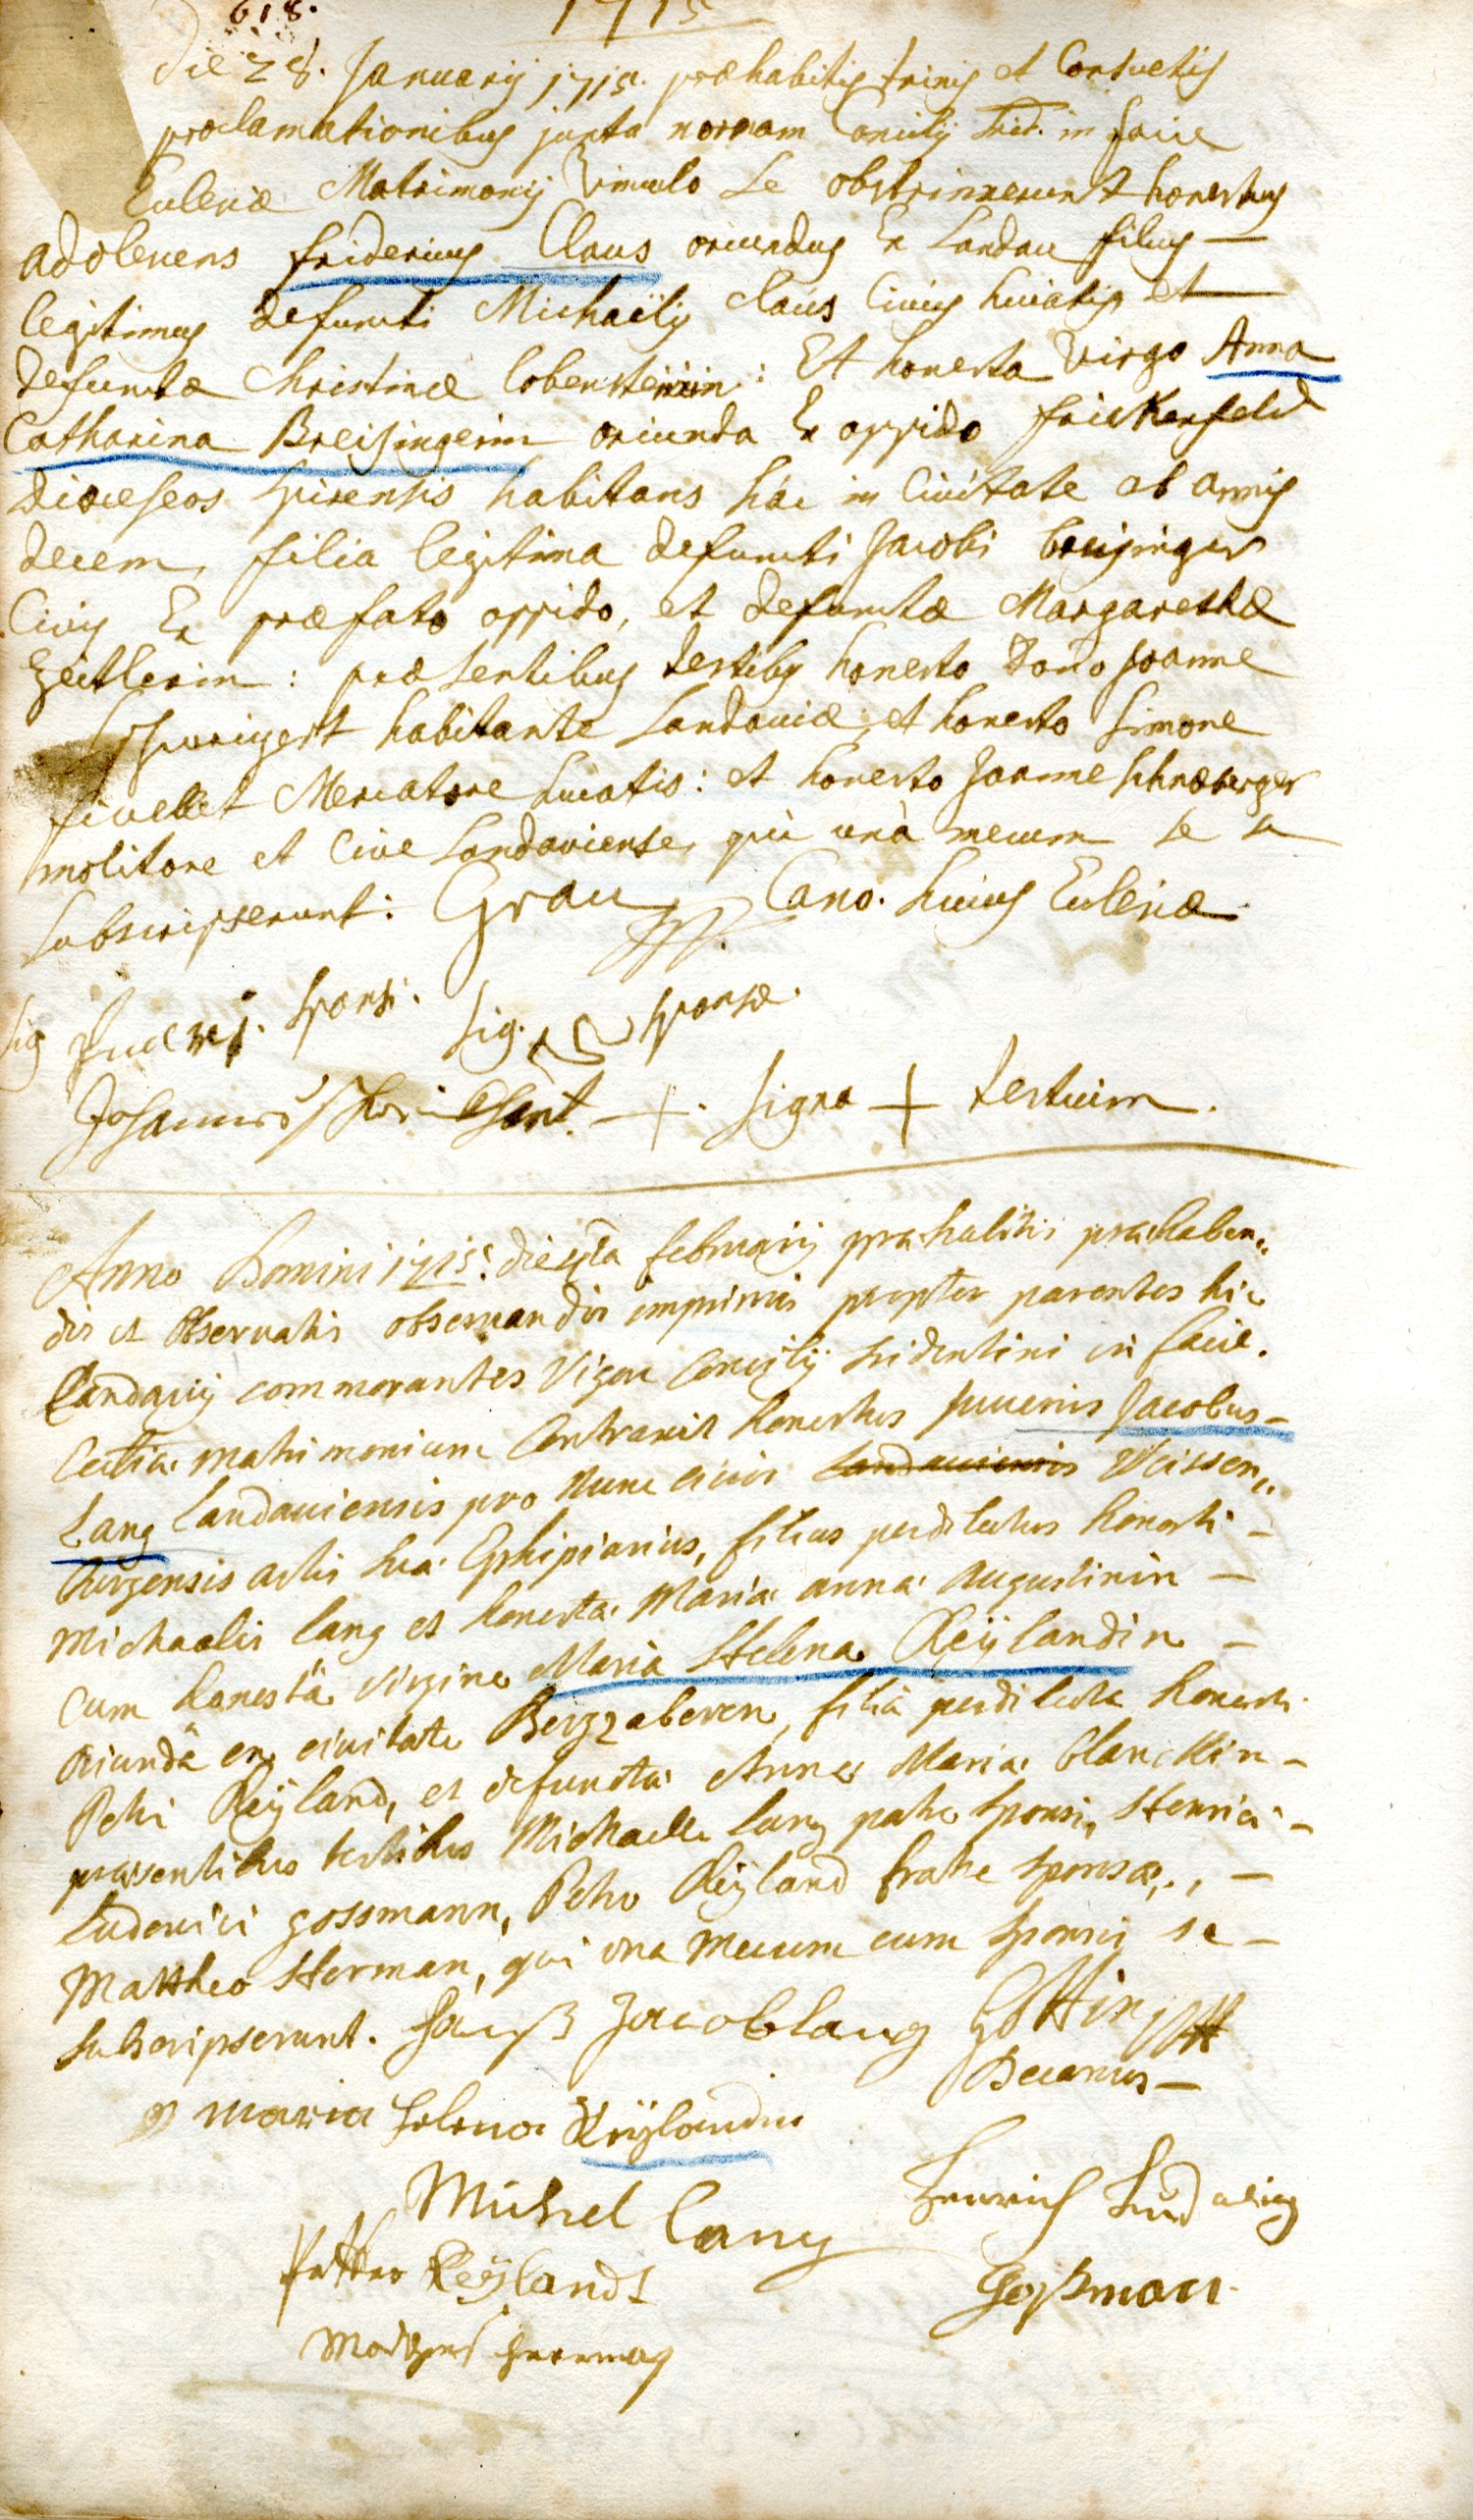 618.
1715
die 28. Januarij 1715. præhabitis trinis et Consuetis
proclamationibus juxta normam Concilij Trid. in facie
Ecclesiæ Matrimonij Vinculo se obstrinxerunt honestus
adolescens fridericus Claus oriundus Ex Landau filius
legitimus defuncti Michaëlis Claus Civis huiatis et
defunctæ Christinæ lobensteinin : Et honesta Virgo Anna
Catharina Breisingerin oriunda Ex oppido frickenfeld
diœceseos spirensis habitans hâc in Civitate ab annis
decem, filia legitima defuncti Jacobi breisinger
Civis Ex præfato oppido, et defunctæ Margarethæ
Zeitlerin : præsentibus testibus honesto Dono Joanne
habitante Landaviæ, et honesto Simone
Mercatore huiatis : et honesto Joanne schneberger
molitore et Cive Landaviense, qui unà mecum se
subscripserunt : Grau Cano. huius Ecclesiæ
sig sponsi. sig. sponsæ.
Johannes + . signa + testium .
Anno Domini 1715. die februarij præhabitis præhaben„
dis et observatis observandis imprimis propter parentes hic
Landavij commorantes Vigore Concilij tridentini in facie.
Ecclesiæ matrimonium Contraxit honestus juvenis Jacobus
Lang Landaviensis pro nunc civis Landaviensis Weissen„
burgensis artis suæ Ephipiarius, filius perdilectus honesti
Michaelis lang et honestæ Mariæ annæ Augustinin
cum honestâ virgine Maria Helena Reÿlandin
oriundâ ex civitate Bergzaberen, filiâ perdilecta honesti
Petri Reÿland, et defunctæ Annæ Mariæ blanckin
præsentibus testibus Michaele lang patre sponsi, Henrici
Ludovici gossmann, Petro Reÿland fratre sponsæ,
Mattheo Herman, qui una mecum cum sponsis se
subscripserunt. Jacob lang Göttin
Decanus
maria helena Reÿlandin
Michel Lang Henrich Ludwig
Petter Reÿlandt Goßman